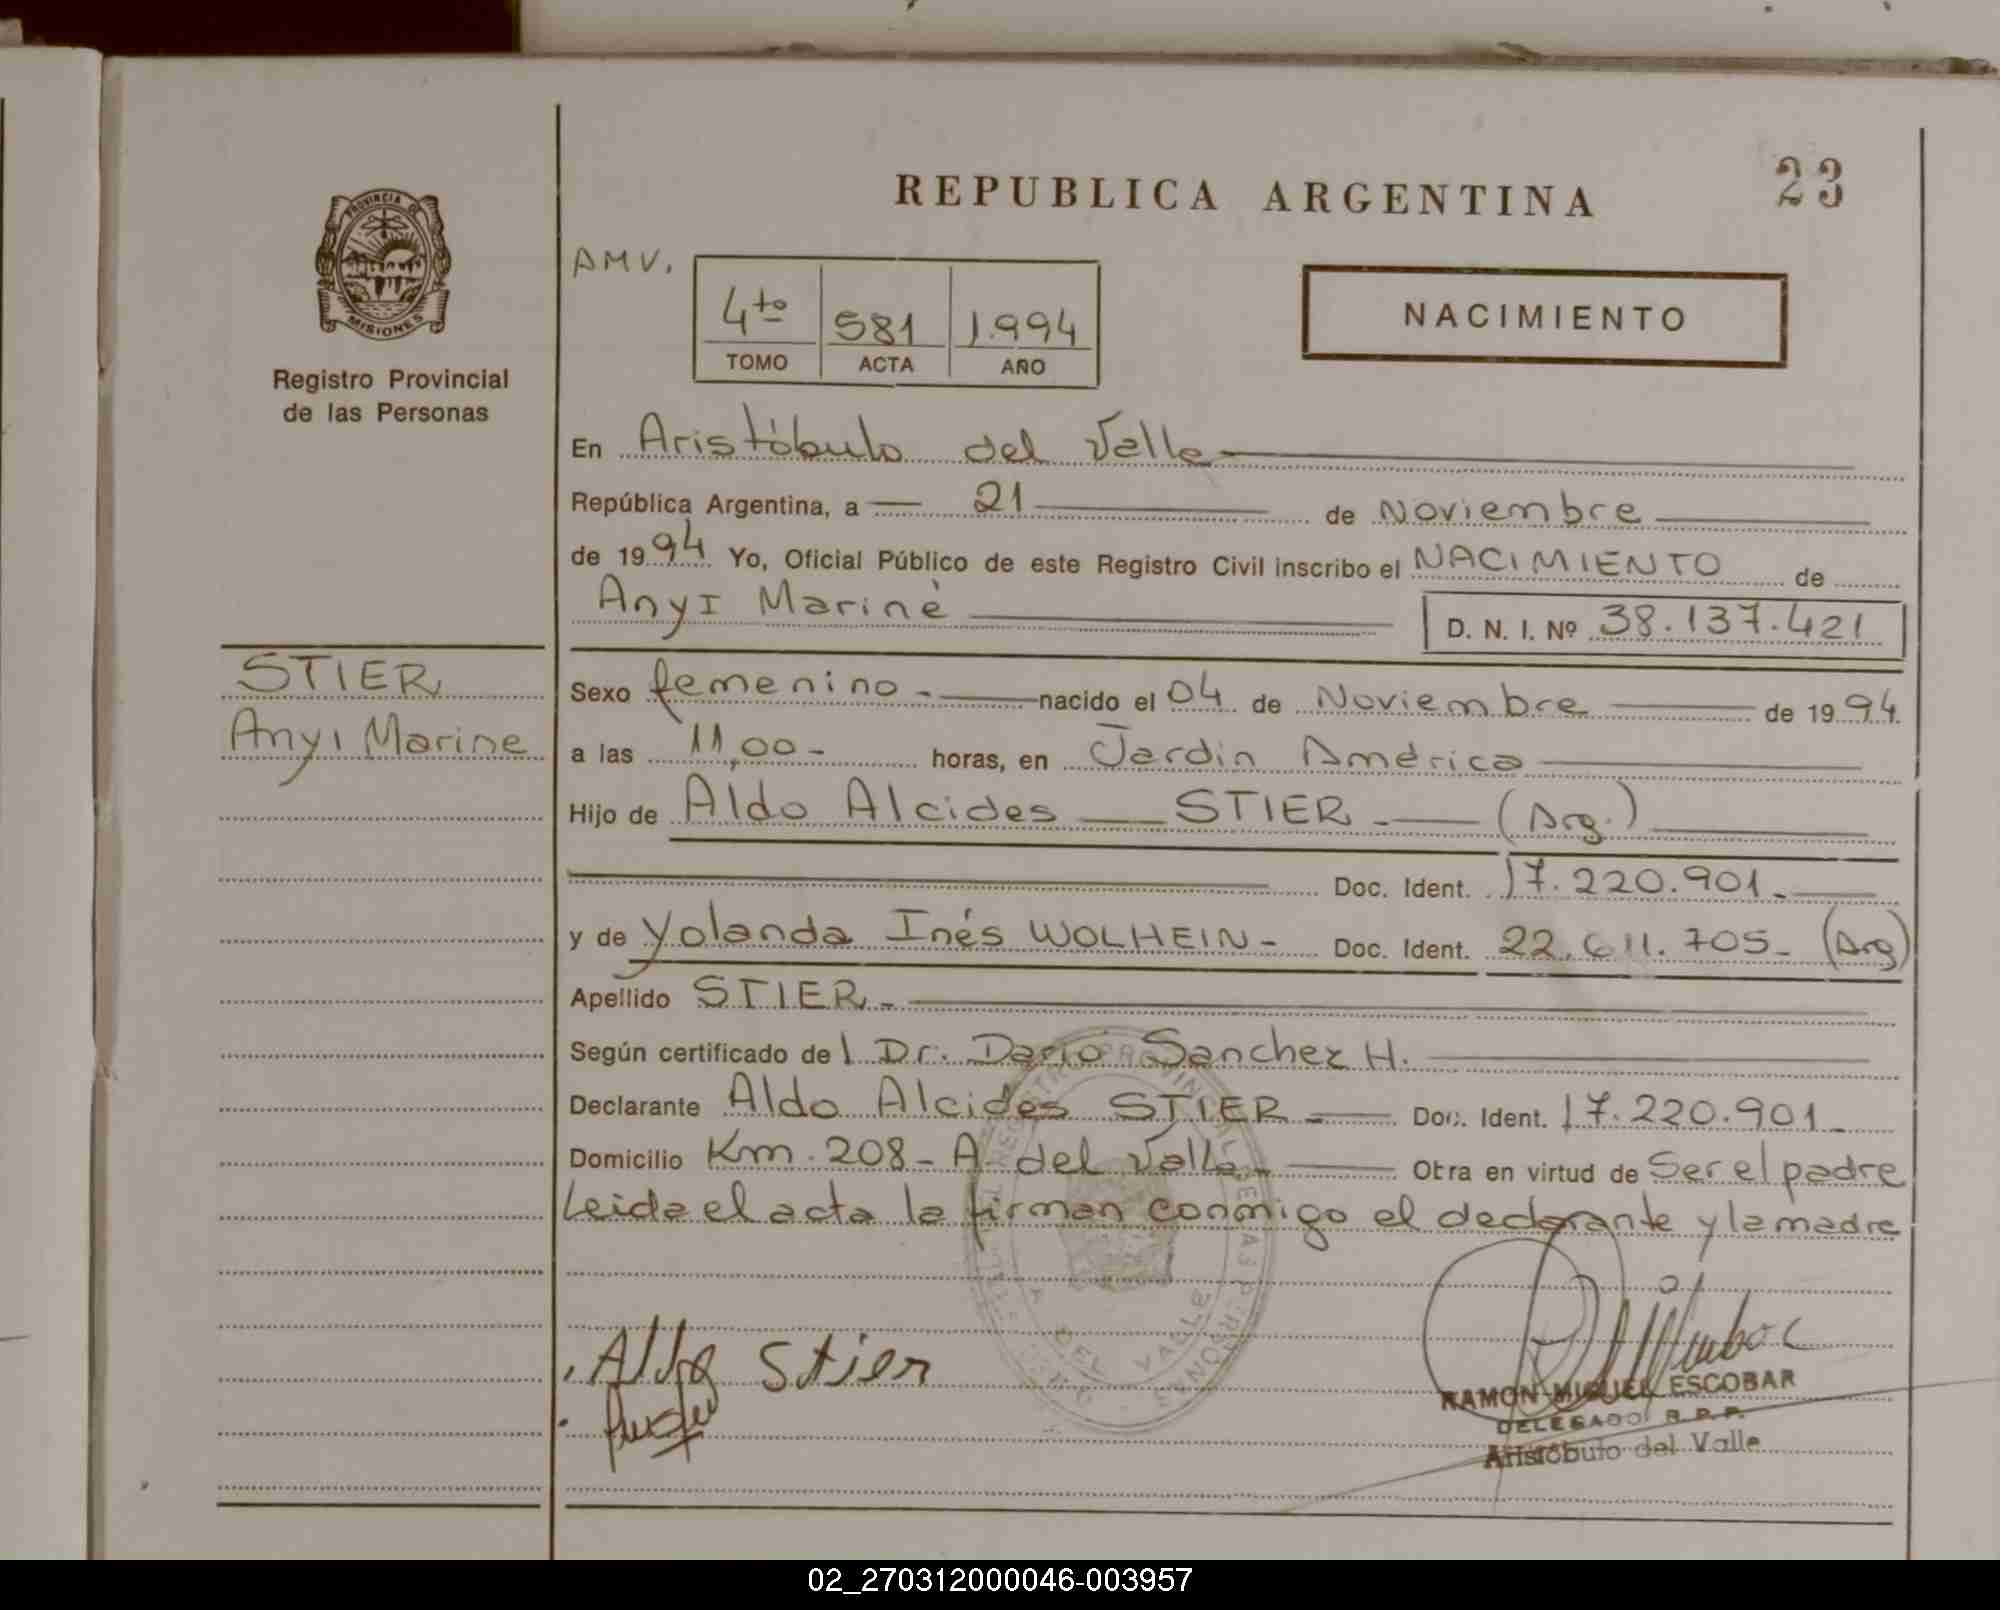 REPUBLICA ARGENTINA
23
PROVINCIA DE
MISIONES
Registro Provincial
de las Personas
AMV.
4to 581 1.994
TOMO ACTA AÑO
NACIMIENTO
En Aristóbulo del Valle
República Argentina, a 21 de Noviembre
de 1994 Yo, Oficial Público de este Registro Civil inscribo el NACIMIENTO de
Anyi Mariné
D. N. I. Nº 38.137.421
STIER
Anyi Marine
Sexo femenino.- nacido el 04 de Noviembre de 1994.
a las 11,00- horas, en Jardín América
Hijo de Aldo Alcides STIER.- (Arg.)
Doc. Ident. 17.220.901.-
y de Yolanda Inés WOLHEIN- Doc. Ident. 22.611.705- (Arg)
Apellido STIER.-
Según certificado del Dr. Darío Sanchez H.
Declarante Aldo Alcides STIER.- Doc. Ident. 17.220.901.-
Domicilio Km. 208- A. del Valle.- Otra en virtud de Ser el padre
Leida el acta la firman conmigo el declarante y la madre
DEL VALLE
Aldo Stier
RAMON MIGUEL ESCOBAR
DELEGADO R.P.P.
Aristóbulo del Valle
02_270312000046-003957